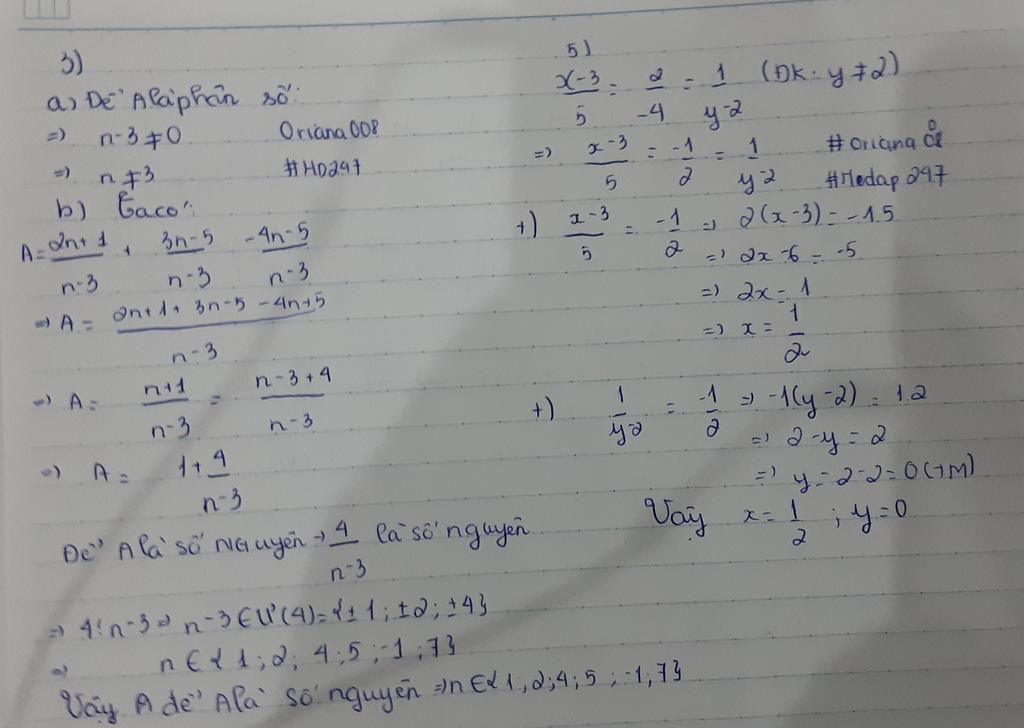 3)
a) Để A là phân số:
=> n-3≠0 Oriana008
=> n≠3 #HD247
b) Ta có:
A = 2n+1/n-3 + 3n-5/n-3 -4n-5/n-3
=> A = 2n+1+3n-5-4n+5/n-3
=> A = n+1/n-3 = n-3+4/n-3
=> A = 1+4/n-3
Để A là số NGuyên → 4/n-3 là số nguyên
=> 4⋮n-3 => n-3 ∈ Ư(4)={±1; ±2; ±4}
=> n ∈ {1; 2; 4; 5; -1; 7}
Vậy A để A là số nguyên => n∈{1,2;4;5;-1;7}
5)
x-3/5 = 2/-4 = 1/y-2 (ĐK: y≠2)
=> x-3/5 = -1/2 = 1/y-2 #Oriana 008
#Hedap247
+) x-3/5 = -1/2 => 2(x-3) = -1.5
=> 2x-6 = -5
=> 2x = 1
=> x = 1/2
+) 1/y-2 = -1/2 => -1(y-2) = 1.2
=> 2-y = 2
=> y = 2-2 = 0 (TM)
Vậy x = 1/2 ; y=0